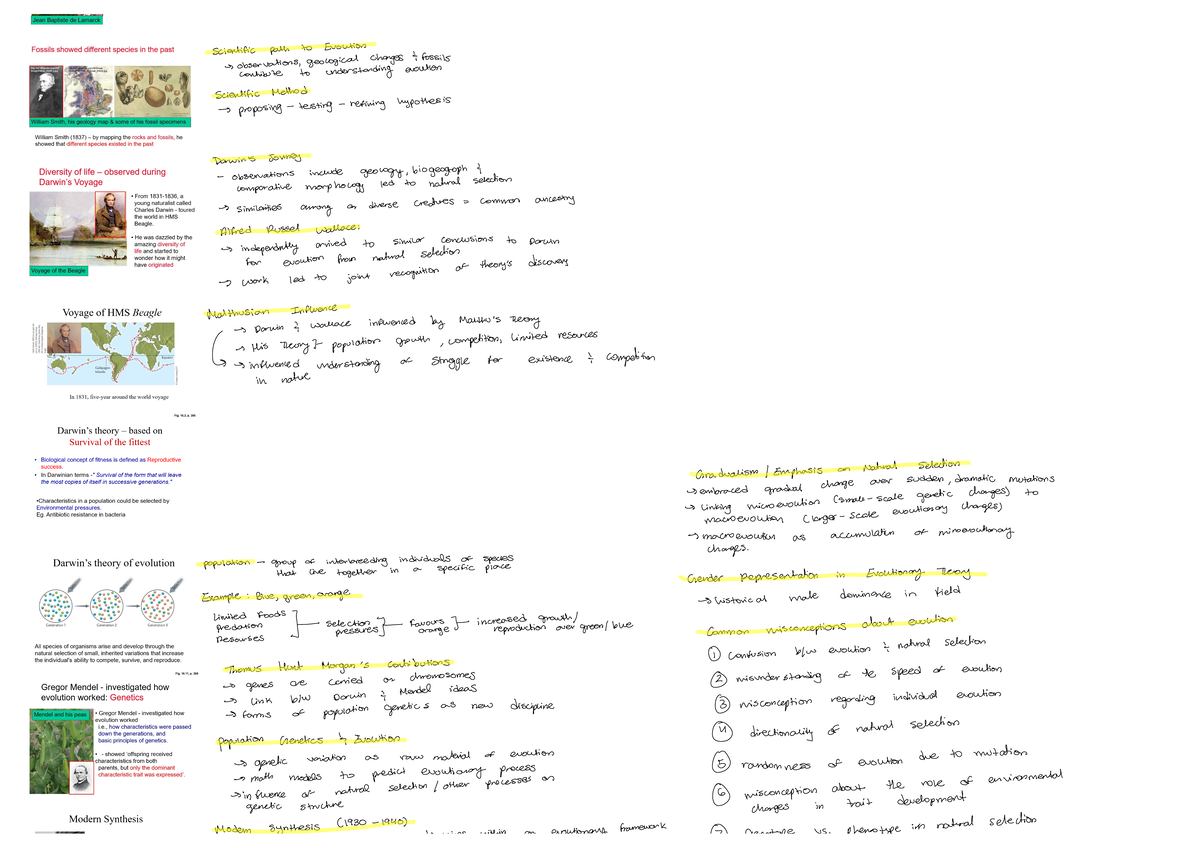 Jean Baptiste de Lamarck
Fossils showed different species in the past
William Smith, his geology map & some of his fossil specimens
William Smith (1837) – by mapping the rocks and fossils, he
showed that different species existed in the past
Scientific path to Evolution
→ observations, geological changes & fossils
contribute to understanding evolution
Scientific Method
→ proposing – testing – refining hypothesis
Diversity of life – observed during
Darwin's Voyage
• From 1831-1836, a
young naturalist called
Charles Darwin - toured
the world in HMS
Beagle.
• He was dazzled by the
amazing diversity of
life and started to
wonder how it might
have originated
Voyage of the Beagle
Darwin's Journey
– observations include geology, biogeograph &
comparative morphology led to natural selection
→ similarities among on diverse creatures = common ancestry
Alfred Russel Wallace:
→ independently arrived to similar conclusions to Darwin
for evolution from natural selection
→ work led to joint recognition of theory's discovery
Voyage of HMS Beagle
In 1831, five-year around the world voyage
Malthusian Influence
→ Darwin & Wallace influenced by Malthu's Theory
→ His Theory } population growth, competition, limited resources
→ influenced understanding of struggle for existence & competition
in nature
Darwin's theory – based on
Survival of the fittest
• Biological concept of fitness is defined as Reproductive
success.
• In Darwinian terms -" Survival of the form that will leave
the most copies of itself in successive generations."
•Characteristics in a population could be selected by
Environmental pressures.
Eg. Antibiotic resistance in bacteria
Darwin's theory of evolution
Generation 1
Generation 2
Generation X
All species of organisms arise and develop through the
natural selection of small, inherited variations that increase
the individual's ability to compete, survive, and reproduce.
population – group of interbreeding individuals of species
that live together in a specific place
Example: Blue, green, orange
Limited Foods
Predation
Resources
selection
pressures
Favours
orange
increased growth/
reproduction over green/blue
Gregor Mendel - investigated how
evolution worked: Genetics
Mendel and his peas
• Gregor Mendel - investigated how
evolution worked
i.e., how characteristics were passed
down the generations, and
basic principles of genetics.
• - showed 'offspring received
characteristics from both
parents, but only the dominant
characteristic trait was expressed'.
Thomas Hunt Morgan's Contributions
→ genes are carried on chromosomes
→ link b/w Darwin & Mendel ideas
→ forms of population genetics as new discipline
Population Genetics & Evolution
→ genetic variation as raw material of evolution
→ math models to predict evolutionary process
→ influence of natural selection / other processes on
genetic structure
Modern Synthesis
Modern Synthesis (1930 – 1940)
within an evolutionary framework
Gradualism / Emphasis on Natural Selection
→ embraced gradual change over sudden, dramatic mutations
→ linking microevolution (small-scale genetic changes) to
macroevolution (larger-scale evolutionary changes)
→ macroevolution as accumulation of microevolutionary
changes.
Gender Representation in Evolutionary Theory
→ historical male dominance in field
Common misconceptions about evolution
① Confusion b/w evolution & natural selection
② misunderstanding of the speed of evolution
③ misconception regarding individual evolution
④ directionality of natural selection
⑤ randomness of evolution due to mutation
⑥ misconception about the role of environmental
changes in trait development
⑦ Genotype vs. phenotype in natural selection